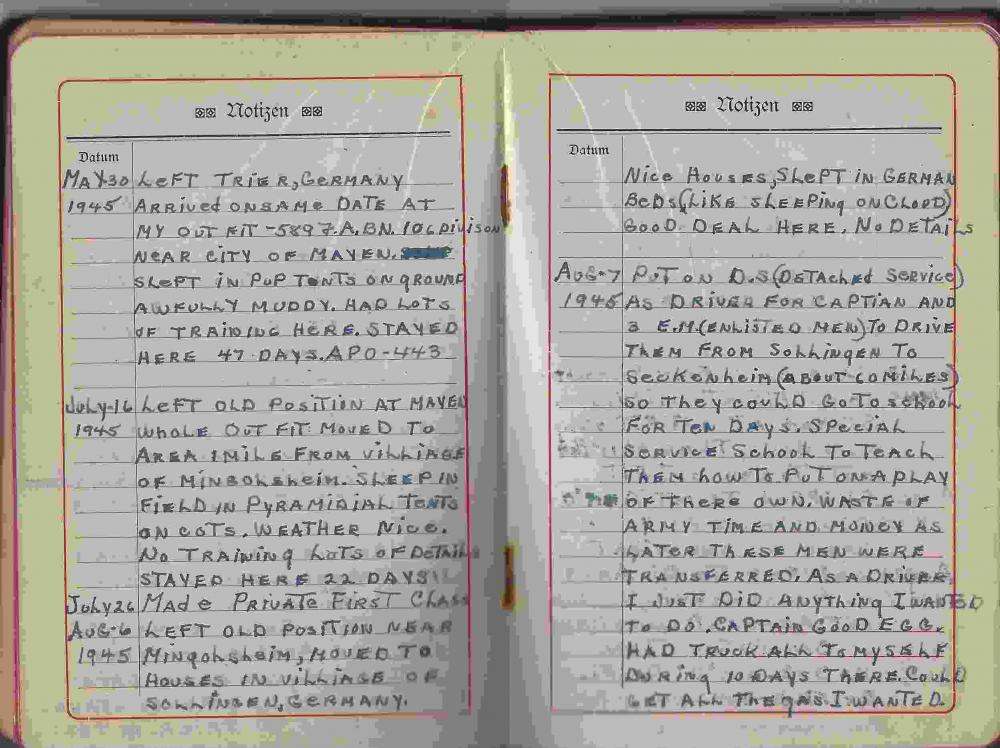 Notizen
Datum
MAY 30 LEFT TRIER, GERMANY
1945 ARRIVED ON SAME DATE AT
MY OUT FIT - 589 F.A.BN. 106 DIVISON
NEAR CITY OF MAYEN.
SLEPT IN PUP TENTS ON GROUND
AWFULLY MUDDY. HAD LOTS
OF TRAINING HERE. STAYED
HERE 47 DAYS. APO-443
JULY-16 LEFT OLD POSITION AT MAYEN
1945 WHOLE OUT FIT MOVED TO
AREA 1 MILE FROM VILLIAGE
OF MINGOLSHEIM. SLEEP IN
FIELD IN PYRAMIDIAL TENTS
ON COTS. WEATHER NICE.
NO TRAINING LOTS OF DETAILS
STAYED HERE 22 DAYS
JULY 26 MADE PRIVATE FIRST CLASS
AUG-6 LEFT OLD POSITION NEAR
1945 MINGOLSHEIM, MOVED TO
HOUSES IN VILLIAGE OF
SOLLINGEN, GERMANY.
Notizen
Datum
NICE HOUSES, SLEPT IN GERMAN
BEDS (LIKE SLEEPING ON CLOUD)
GOOD DEAL HERE. NO DETAILS
AUG-7 PUT ON D.S (DETACHED SERVICE)
1945 AS DRIVER FOR CAPTIAN AND
3 E.M. (ENLISTED MEN) TO DRIVE
THEM FROM SOLLINGEN TO
SECKENHEIM (ABOUT 60 MILES)
SO THEY COULD GO TO SCHOOL
FOR TEN DAYS. SPECIAL
SERVICE SCHOOL TO TEACH
THEM HOW TO PUT ON A PLAY
OF THERE OWN. WASTE OF
ARMY TIME AND MONEY AS
LATER THESE MEN WERE
TRANSFERRED. AS A DRIVER
I JUST DID ANYTHING I WANTED
TO DO. CAPTAIN GOOD EGG.
HAD TRUCK ALL TO MYSELF
DURING 10 DAYS THERE. COULD
GET ALL THE GAS I WANTED.